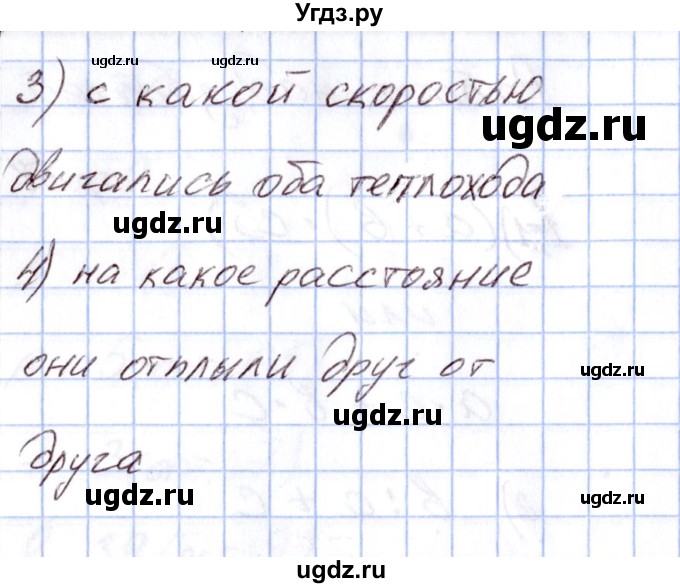 Угдз.ру
3) с какой скоростью
двигались оба теплохода
4) на какое расстояние
они отплыли друг от
друга
ugdz.ru
ugdz.ru
ugdz.ru
ugdz.ru
ugdz.ru
ugdz.ru
ugdz.ru
ugdz.ru
ugdz.ru
ugdz.ru
ugdz.ru